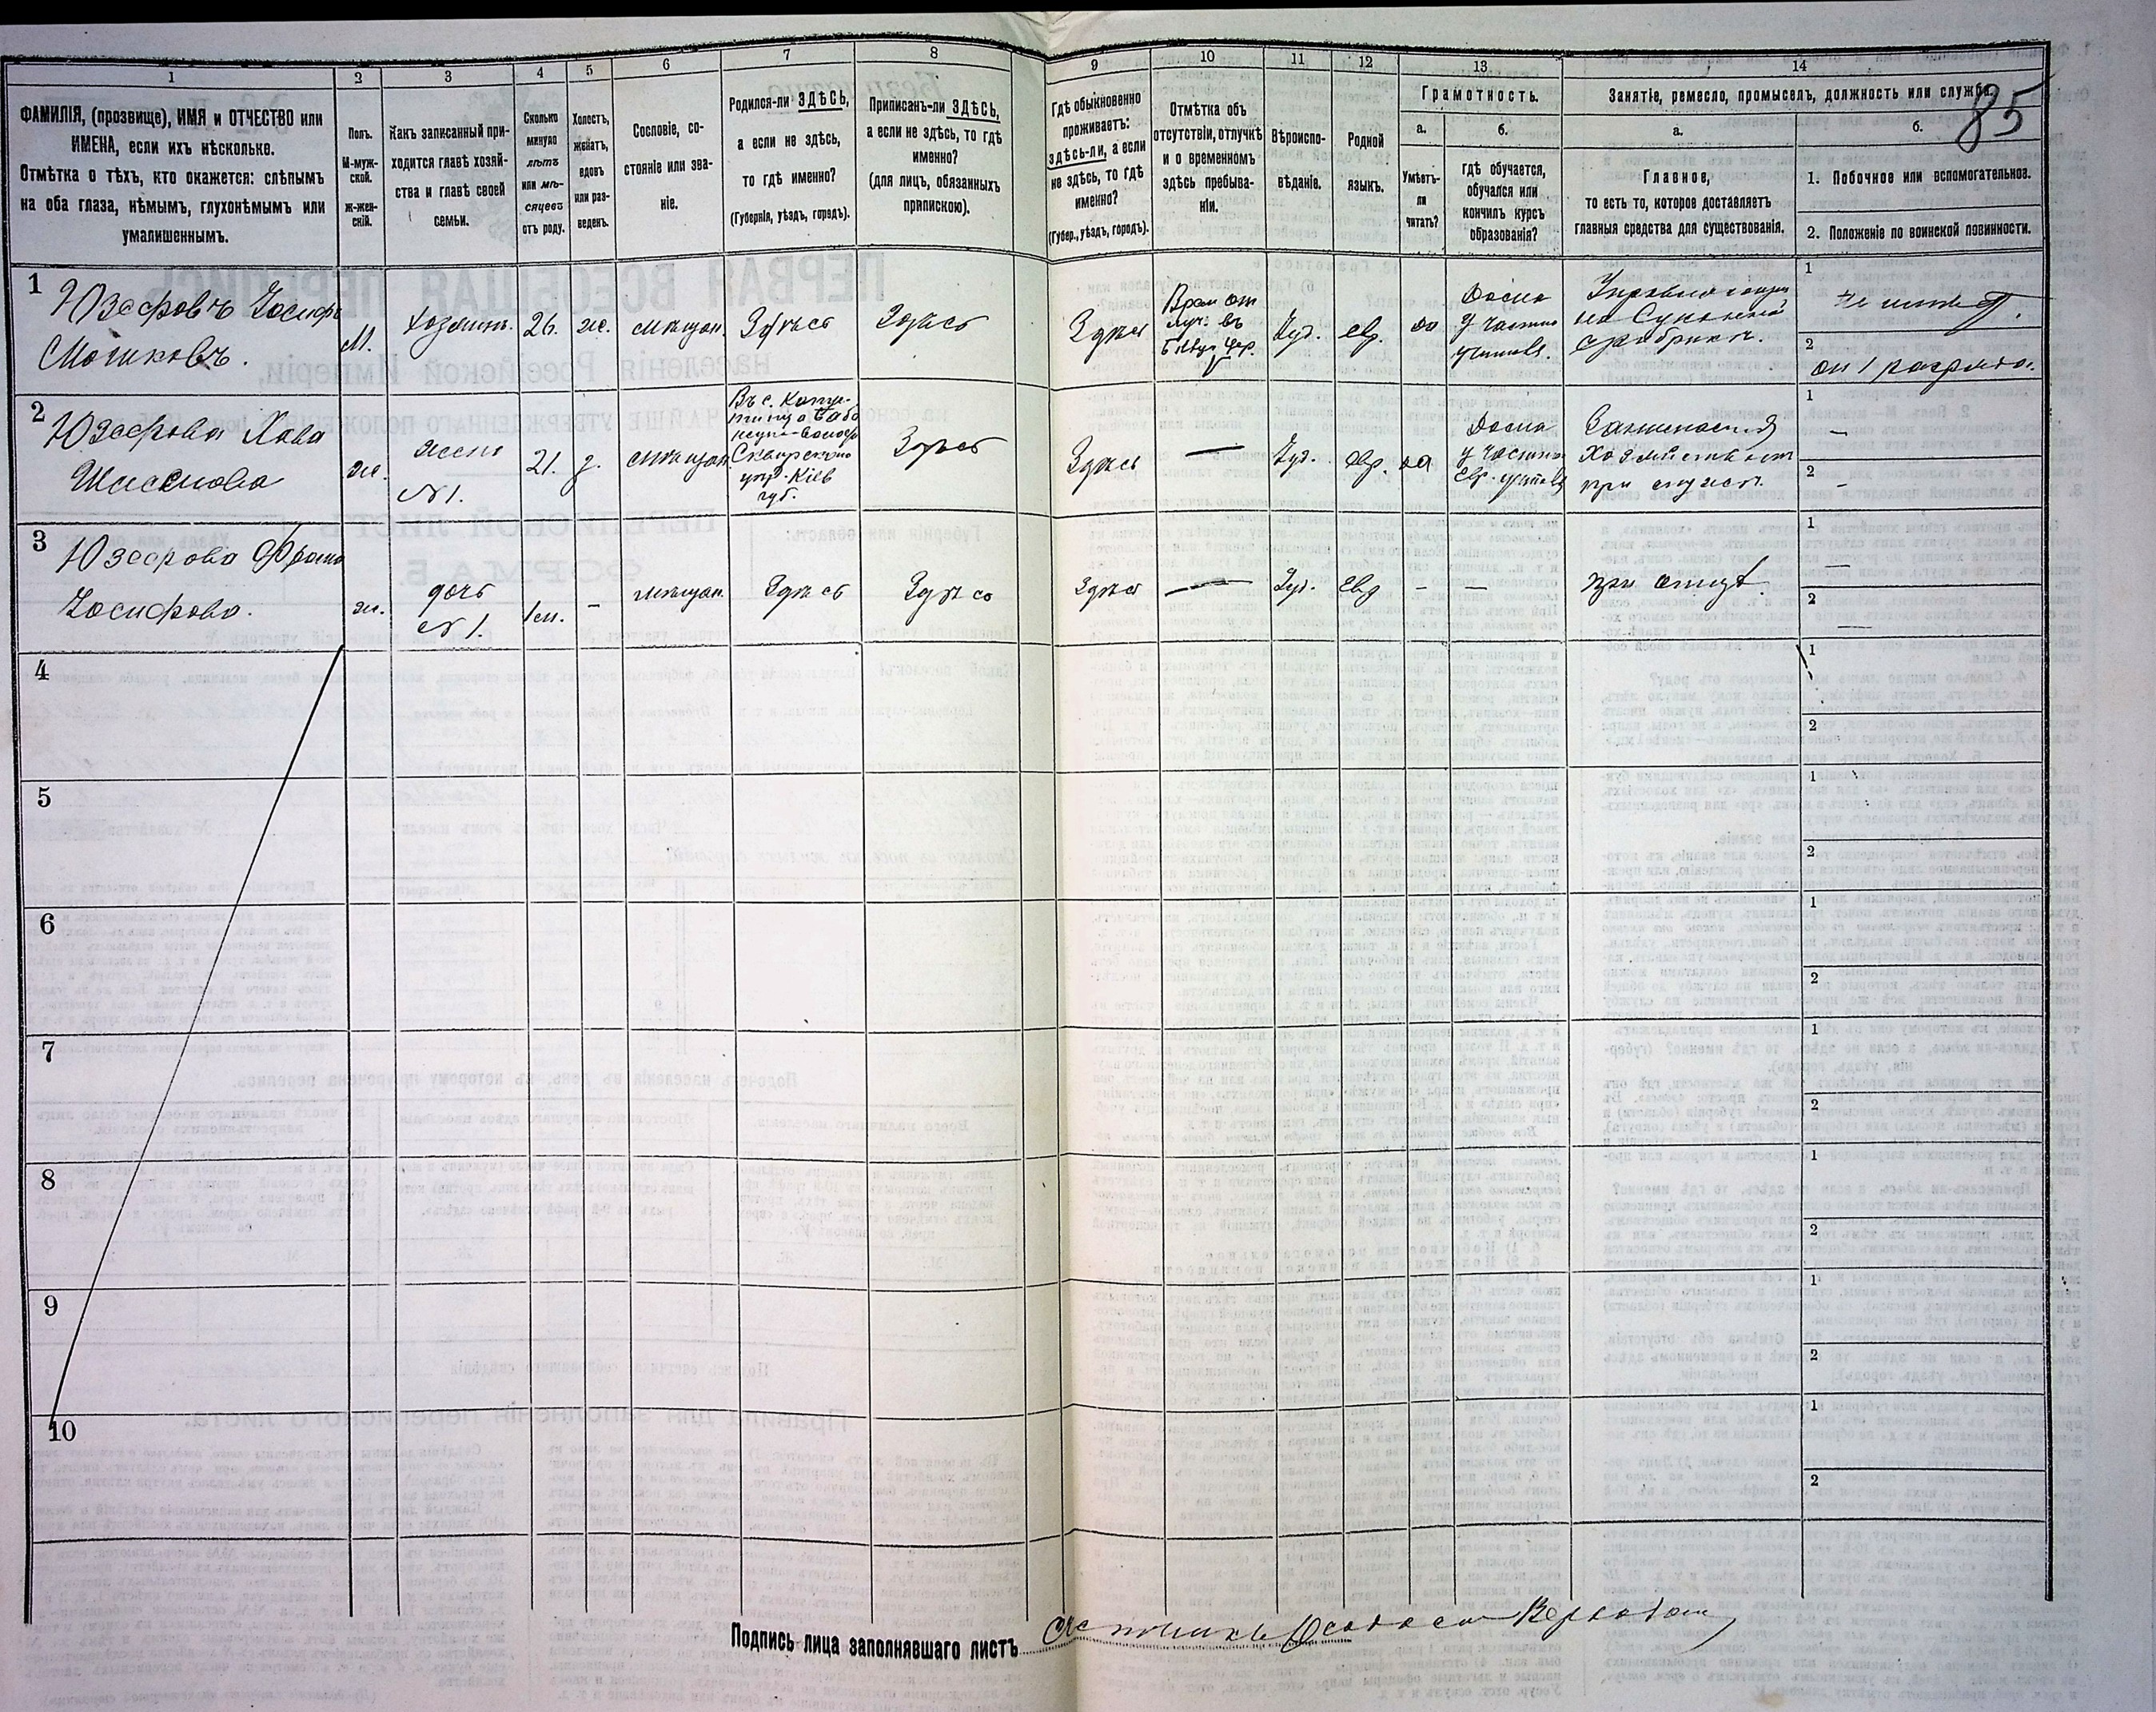 85
1 2 3 4 5 6 7 8 9 10 11 12 13 14
ФАМИЛІЯ, (прозвище), ИМЯ и ОТЧЕСТВО или
ИМЕНА, если ихъ нѣсколько.
Отмѣтка о тѣхъ, кто окажется: слѣпымъ
на оба глаза, нѣмымъ, глухонѣмымъ или
умалишеннымъ.
Полъ.
М-муж-
ской.
ж-жен-
скій.
Какъ записанный при-
ходится главѣ хозяй-
ства и главѣ своей
семьи.
Сколько
минуло
лѣтъ
или мѣ-
сяцевъ
отъ роду.
Холостъ,
женатъ,
вдовъ
или раз-
веденъ.
Сословіе, со-
стояніе или зва-
ніе.
Родился-ли ЗДѢСЬ,
а если не здѣсь,
то гдѣ именно?
(Губернія, уѣздъ, городъ).
Приписанъ-ли ЗДѢСЬ,
а если не здѣсь, то гдѣ
именно?
(для лицъ, обязанныхъ
припискою).
Гдѣ обыкновенно
проживаетъ:
здѣсь-ли, а если
не здѣсь, то гдѣ
именно?
(Губер., уѣздъ, городъ).
Отмѣтка объ
отсутствіи, отлучкѣ
и о временномъ
здѣсь пребыва-
ніи.
Вѣроиспо-
вѣданіе.
Родной
языкъ.
Грамотность.
а.
Умѣетъ-
ли
читать?
б.
гдѣ обучается,
обучался или
кончилъ курсъ
образованія?
Занятіе, ремесло, промыселъ, должность или служба.
а.
Главное,
то есть то, которое доставляетъ
главныя средства для существованія.
б.
1. Побочное или вспомогательное.
2. Положеніе по воинской повинности.
1
Юзефовъ Іосифъ
Мошковъ.
М.
хозяинъ.
26.
ж.
мѣщан.
Здѣсь
Здѣсь
Здѣсь
Врем от
луч. въ
Іуд.
евр.
да
Дома
у частн
учител.
Управляющій
на Суконной
фабрикѣ.
1
не имѣетъ.
2
он 1 разряда.
2
Юзефова Хава
ж.
жена
№ 1.
21.
з.
мѣщан.
Въ с.
Сквирскаго
уѣз. Кіев
губ.
Здѣсь
Здѣсь
—
Іуд.
евр.
да
Дома
у частн
Евр. учител
хозяйством
при мужѣ.
1
—
2
-
3
Юзефова
Іосифова.
ж.
дочь
№ 1.
1 м.
-
мѣщан.
Здѣсь
Здѣсь
Здѣсь
—
Іуд.
Евр
-
—
при отцѣ.
1
—
2
—
4
1
2
5
1
2
6
1
2
7
1
2
8
1
2
9
1
2
10
1
2
Подпись лица заполнявшаго листъ